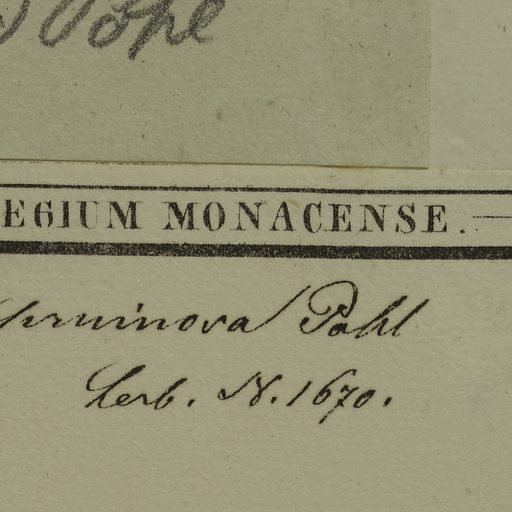 Pohl
EGIUM MONACENSE.
pruinosa Pohl
herb. N. 1670.